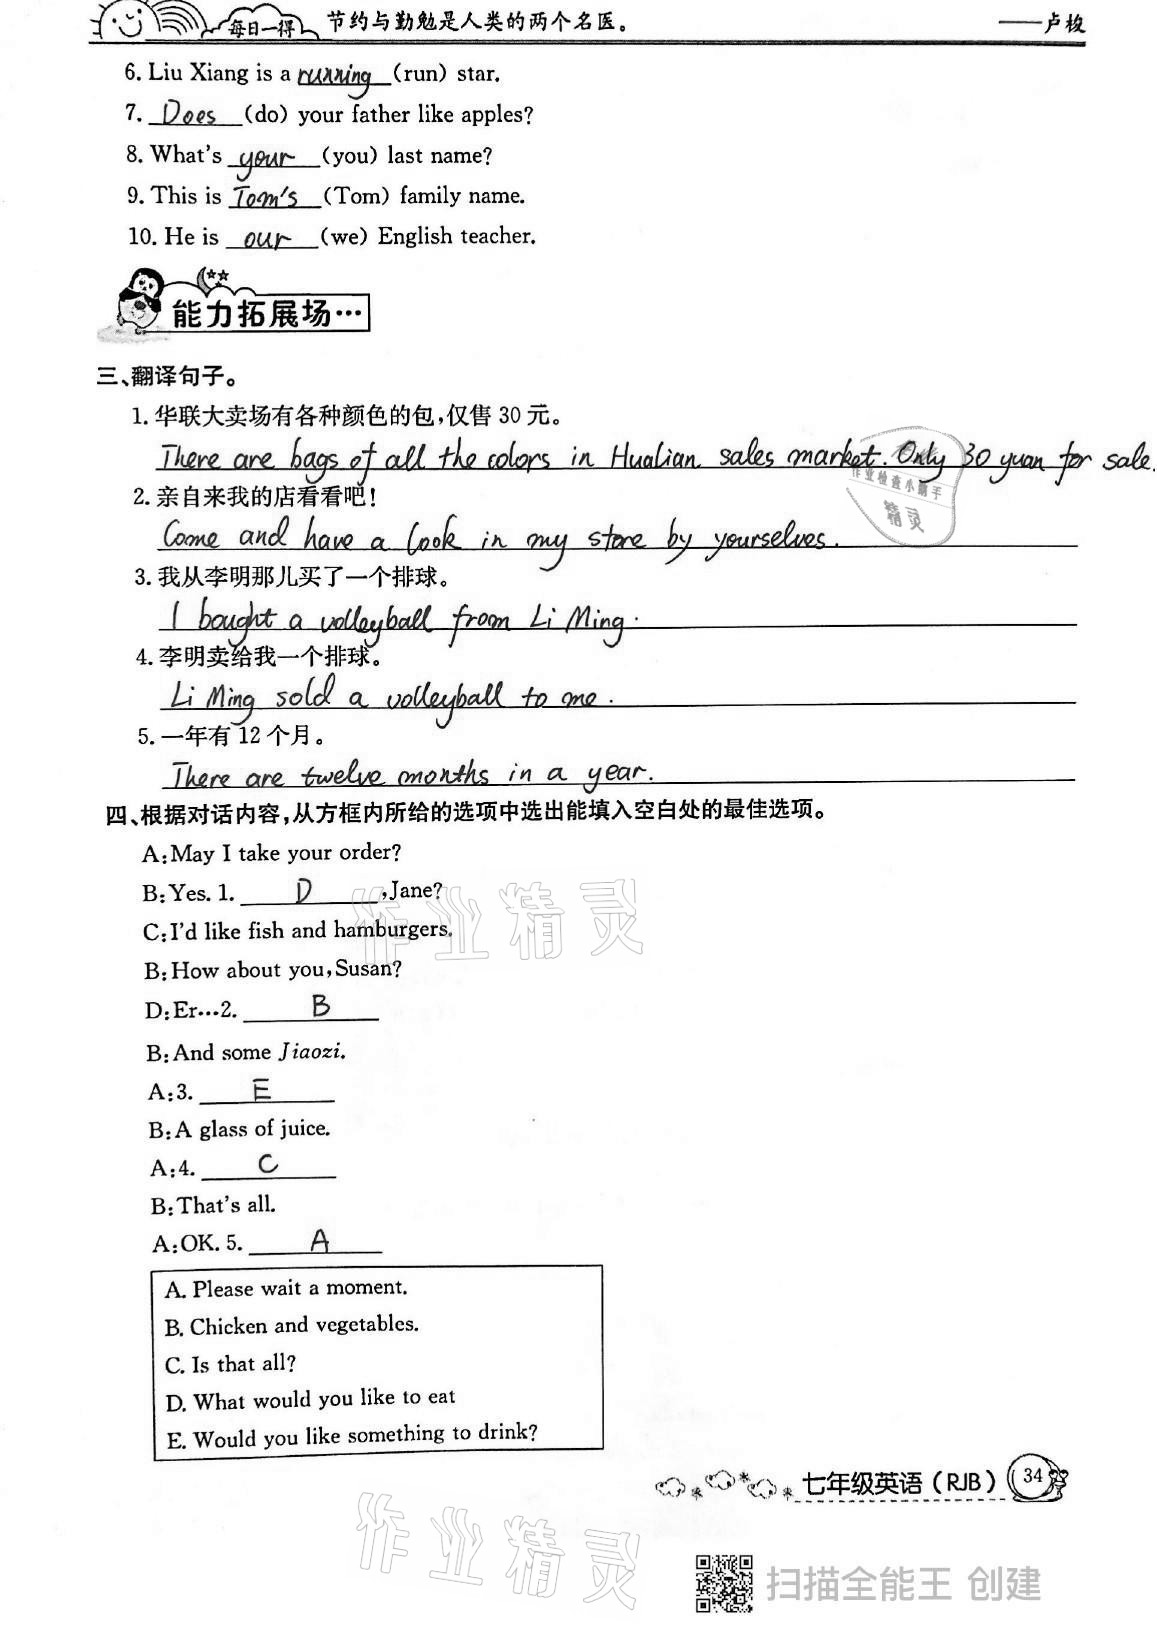 每日一得 节约与勤勉是人类的两个名医。 ——卢梭
6. Liu Xiang is a running (run) star.
7. Does (do) your father like apples?
8. What's your (you) last name?
9. This is Tom's (Tom) family name.
10. He is our (we) English teacher.
能力拓展场…
三、翻译句子。
1. 华联大卖场有各种颜色的包,仅售 30 元。
There are bags of all the colors in Hualian sales market. Only 30 yuan for sale.
作业检查小帮手
精灵
2. 亲自来我的店看看吧!
Come and have a look in my store by yourselves.
3. 我从李明那儿买了一个排球。
I bought a volleyball from Li Ming.
4. 李明卖给我一个排球。
Li Ming sold a volleyball to me.
5. 一年有 12 个月。
There are twelve months in a year.
四、根据对话内容,从方框内所给的选项中选出能填入空白处的最佳选项。
A: May I take your order?
B: Yes. 1. D , Jane?
C: I'd like fish and hamburgers.
作业精灵
B: How about you, Susan?
D: Er…2. B
B: And some Jiaozi.
A: 3. E
B: A glass of juice.
A: 4. C
B: That's all.
A: OK. 5. A
A. Please wait a moment.
B. Chicken and vegetables.
C. Is that all?
D. What would you like to eat
E. Would you like something to drink?
七年级英语(RJB) 34
作业精灵
扫描全能王 创建